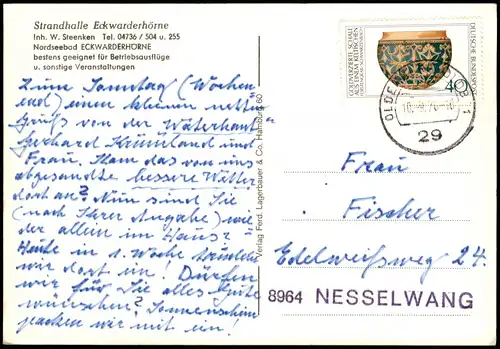 Strandhalle Eckwarderhörne
Inh. W. Steenken Tel. 04736 / 504 u. 255
Nordseebad ECKWARDERHÖRNE
bestens geeignet für Betriebsausflüge
u. sonstige Veranstaltungen
Zum Sonntag (Wochen
end) einen kleinen netten
Gruß von der Waterkant
Gerhard und
Frau. Kam das von uns
abgesandte bessere Wetter
dort an? Nun sind Sie
(nach Ihrer Angabe) wie-
der allein im Haus?
Heute in 1. Woche
wir dort ein! Dürfen
wir für Sie alles Gute
wünschen? Sonnenschein
packen wir mit ein!
Verlag Ferd. Lagerbauer & Co. Hamburg 60
GOLDVERZIERTE SCHALE
AUS EINEM KELTISCHEN
DEUTSCHE BUNDESPOST
40
OLDENBURG
29
Frau
Fischer
Edelweißweg 24.
8964 NESSELWANG